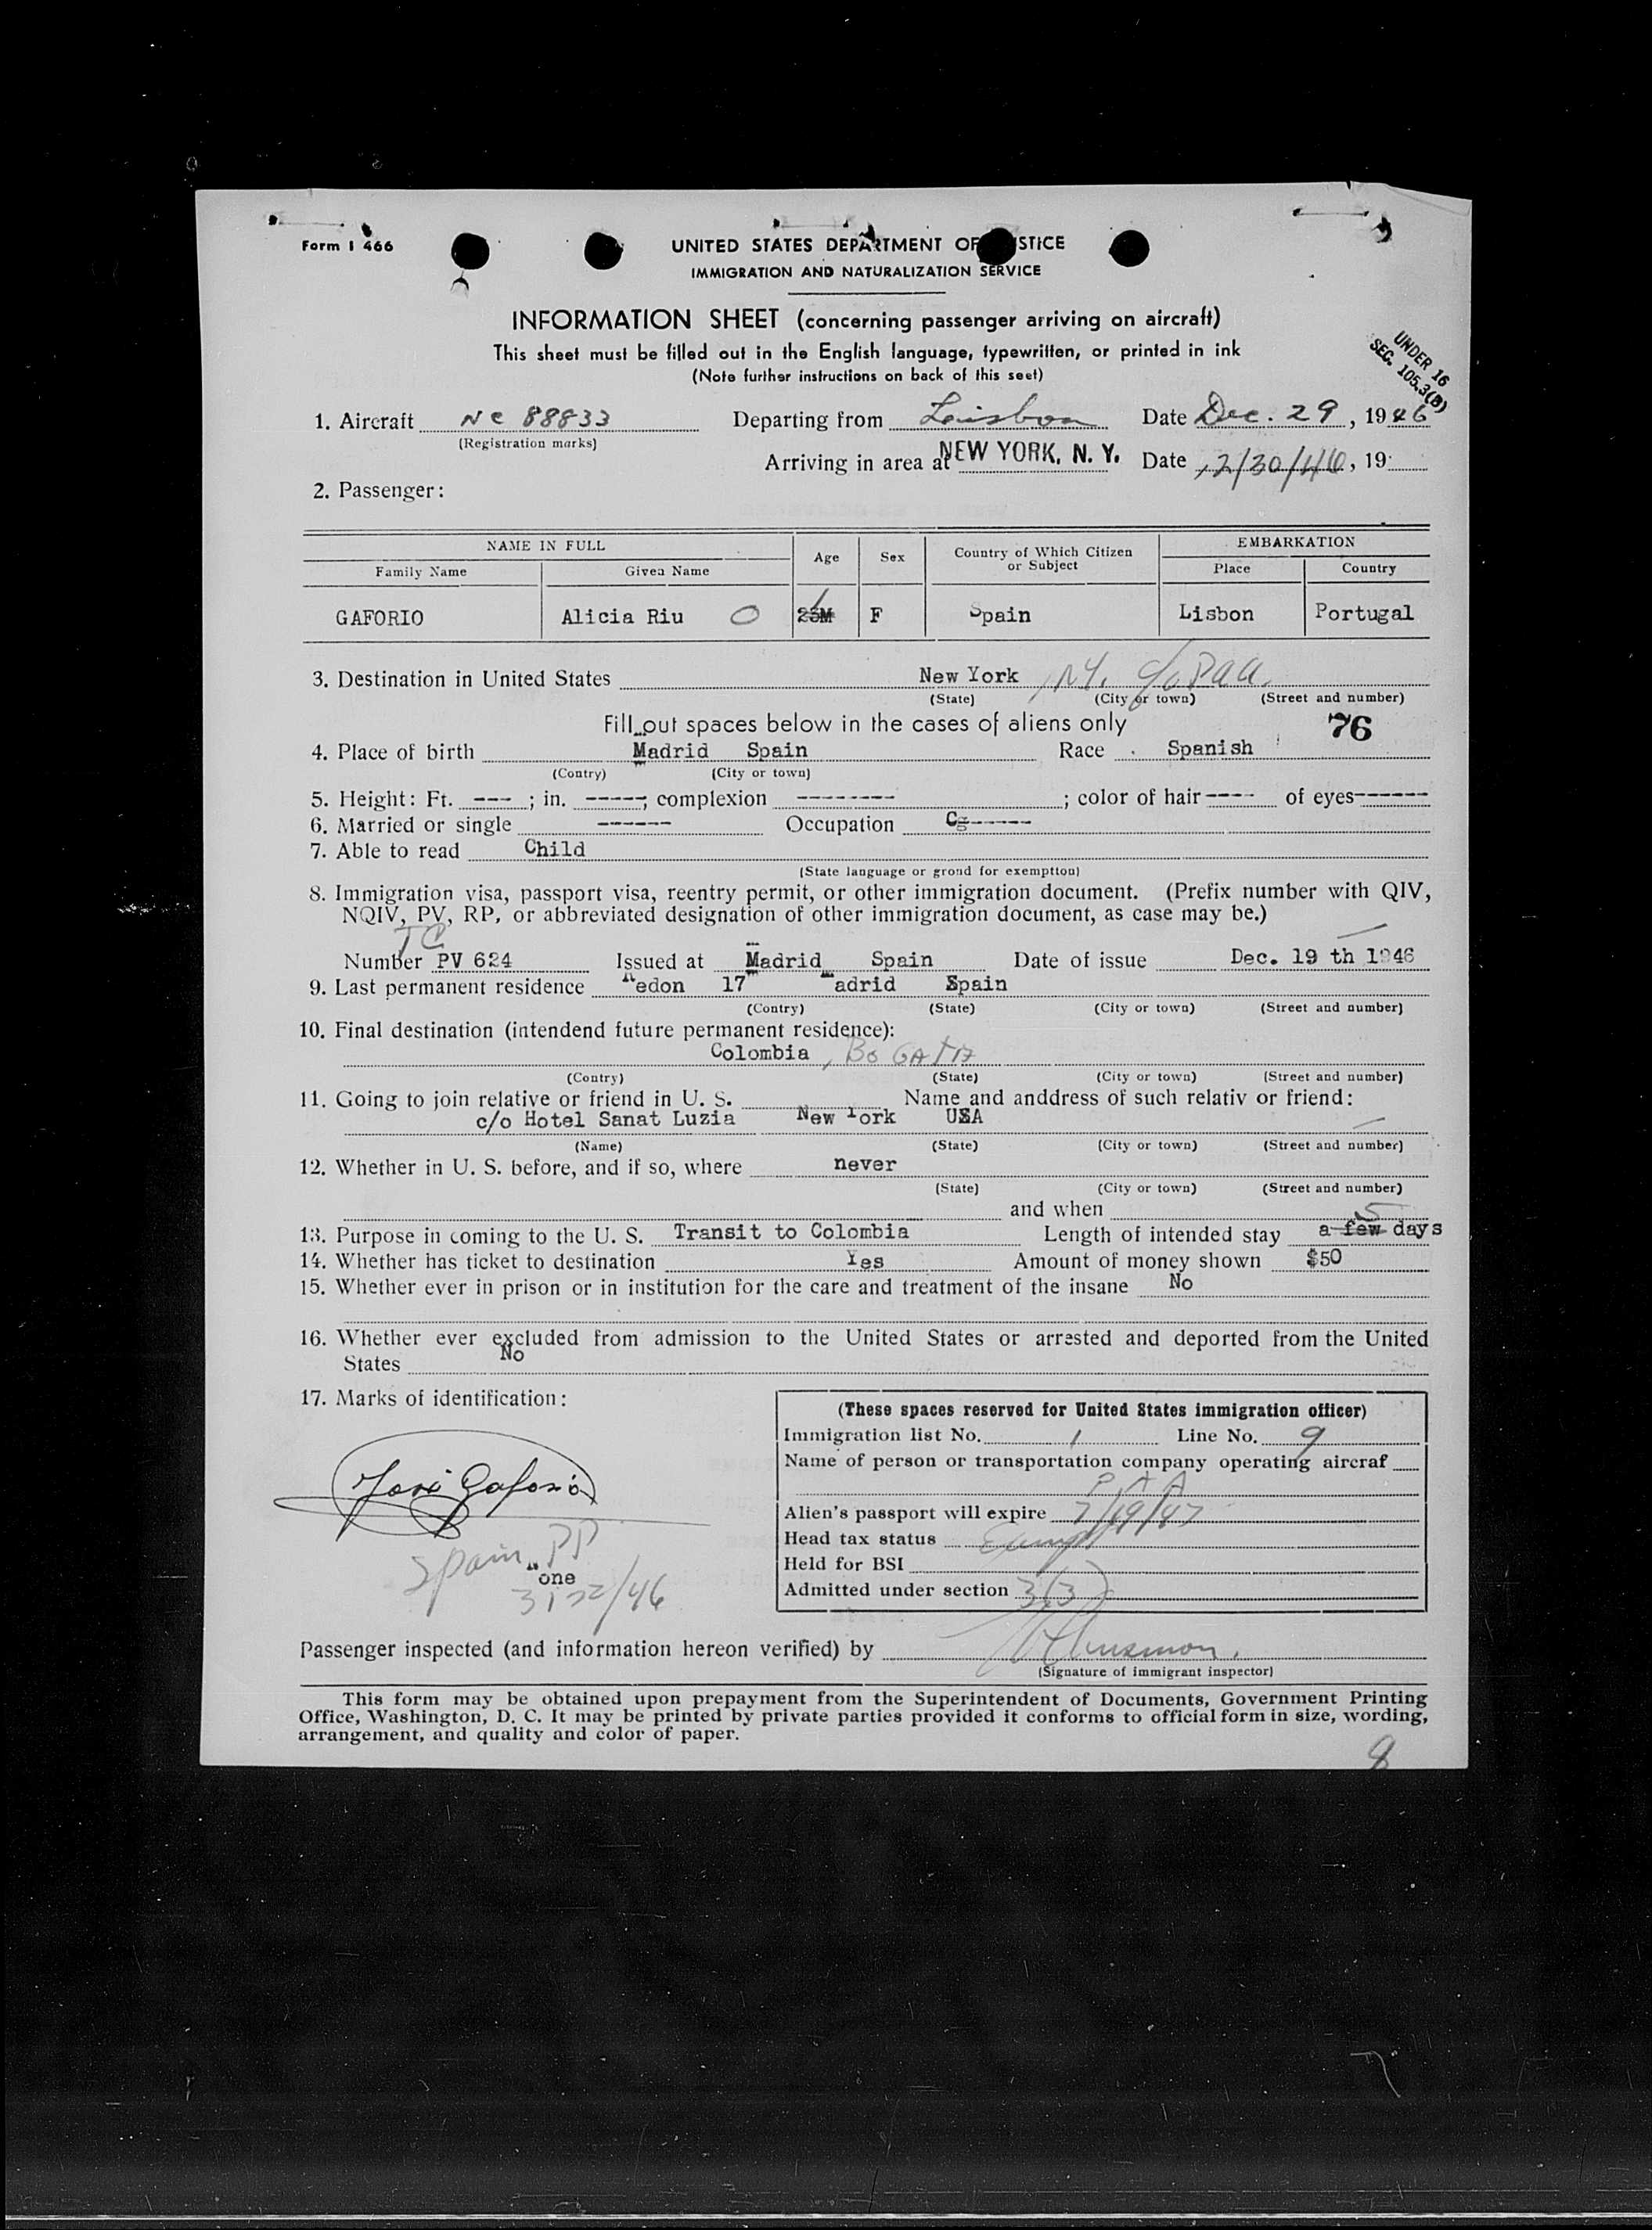 Form I 466
UNITED STATES DEPARTMENT OF STICE
IMMIGRATION AND NATURALIZATION SERVICE
INFORMATION SHEET (concerning passenger arriving on aircraft)
This sheet must be filled out in the English language, typewritten, or printed in ink
(Note further instructions on back of this seet)
UNDER 16
SEC. 105.3(B)
1. Aircraft NC 88833 Departing from Leisbon Date Dec. 29, 1946
(Registration marks)
Arriving in area at NEW YORK, N. Y. Date 12/30/46, 19
2. Passenger:
NAME IN FULL Age Sex Country of Which Citizen or Subject EMBARKATION
Family Name Given Name Place Country
GAFORIO Alicia Riu 0 23M F Spain Lisbon Portugal
3. Destination in United States New York, NY. c/o Paa.
(State) (City or town) (Street and number)
Fill out spaces below in the cases of aliens only 76
4. Place of birth Madrid Spain Race Spanish
(Contry) (City or town)
5. Height: Ft. --- ; in. -----; complexion -------- ; color of hair ---- of eyes ------
6. Married or single ------ Occupation Cg-----
7. Able to read Child
(State language or grond for exemptton)
8. Immigration visa, passport visa, reentry permit, or other immigration document. (Prefix number with QIV,
NQIV, PV, RP, or abbreviated designation of other immigration document, as case may be.)
TC
Number PV 624 Issued at Madrid Spain Date of issue Dec. 19 th 1946
9. Last permanent residence edon 17 Madrid Spain
(Contry) (State) (City or town) (Street and number)
10. Final destination (intendend future permanent residence):
Colombia, BOGATA
(Contry) (State) (City or town) (Street and number)
11. Going to join relative or friend in U. S. Name and anddress of such relativ or friend:
c/o Hotel Sanat Luzia New York USA
(Name) (State) (City or town) (Street and number)
12. Whether in U. S. before, and if so, where never
(State) (City or town) (Street and number)
and when
13. Purpose in coming to the U. S. Transit to Colombia Length of intended stay a few 5 days
14. Whether has ticket to destination Yes Amount of money shown $50
15. Whether ever in prison or in institution for the care and treatment of the insane No
16. Whether ever excluded from admission to the United States or arrested and deported from the United
States No
17. Marks of identification:
José Gaforió
Spain PP
None
(These spaces reserved for United States immigration officer)
Immigration list No. 1 Line No. 9
Name of person or transportation company operating aircraf
PAA
Alien's passport will expire 7/19/47
Head tax status Exempt
Held for BSI
Admitted under section 3(3)
Passenger inspected (and information hereon verified) by
(Signature of immigrant inspector)
This form may be obtained upon prepayment from the Superintendent of Documents, Government Printing
Office, Washington, D. C. It may be printed by private parties provided it conforms to official form in size, wording,
arrangement, and quality and color of paper.
9